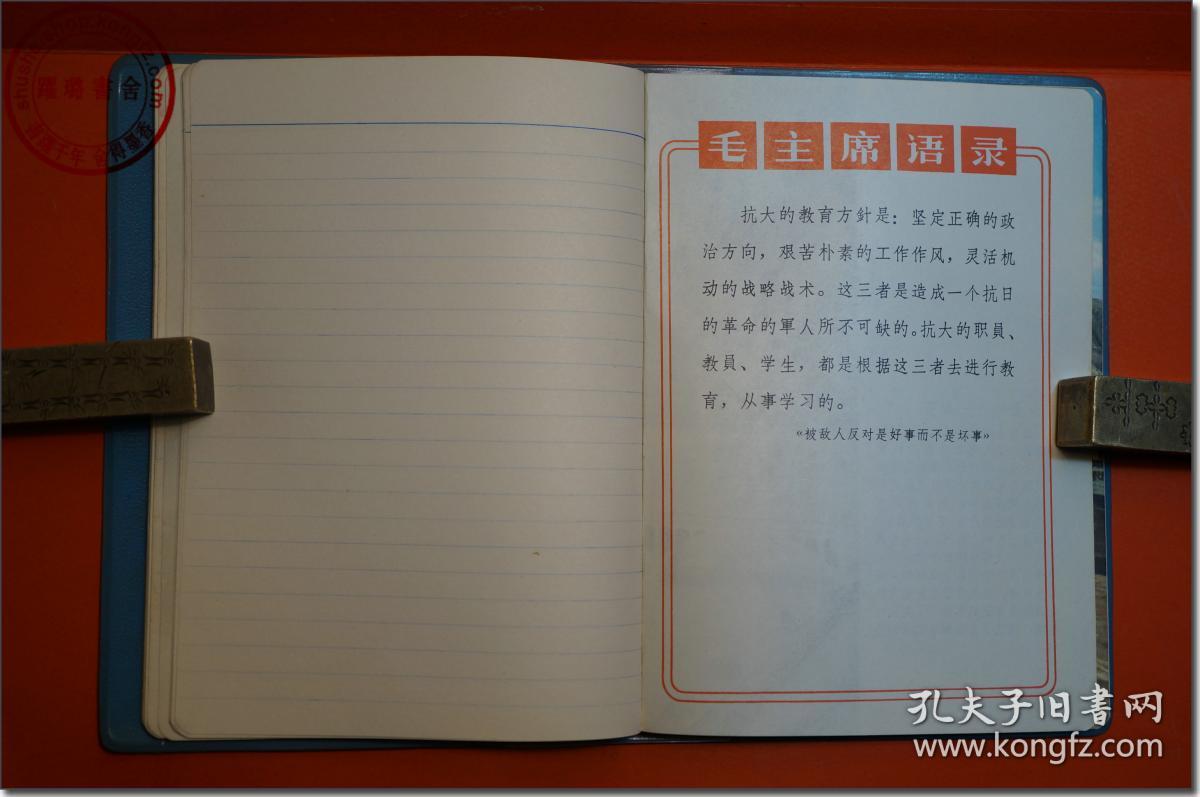 shushe.shop.kongfz.com
書舍
毛主席语录
抗大的教育方針是：坚定正确的政
治方向，艰苦朴素的工作作风，灵活机
动的战略战术。这三者是造成一个抗日
的革命的軍人所不可缺的。抗大的职員、
教員、学生，都是根据这三者去进行教
育，从事学习的。
«被敌人反对是好事而不是坏事»
孔夫子旧書网
www.kongfz.com